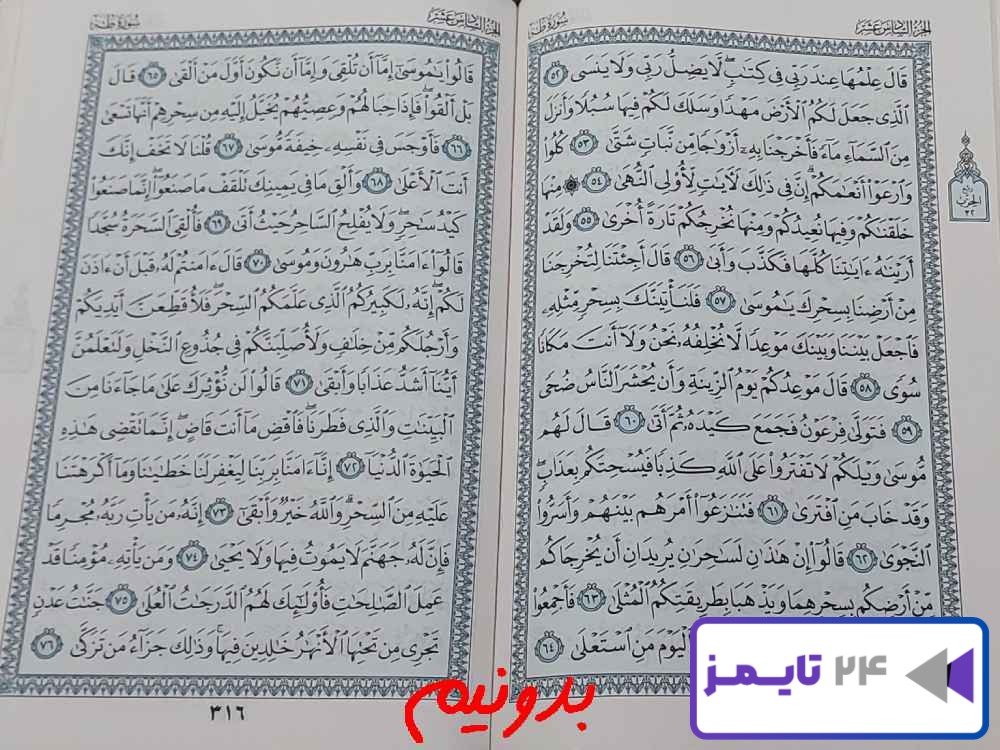 الجزء السادس عشر
سورة طه
قَالَ عِلْمُهَا عِندَ رَبِّى فِى كِتَٰبٍۖ لَّا يَضِلُّ رَبِّى وَلَا يَنسَى ٥٢
ٱلَّذِى جَعَلَ لَكُمُ ٱلْأَرْضَ مَهْدًا وَسَلَكَ لَكُمْ فِيهَا سُبُلًا وَأَنزَلَ
مِنَ ٱلسَّمَآءِ مَآءً فَأَخْرَجْنَا بِهِۦٓ أَزْوَٰجًا مِّن نَّبَاتٍ شَتَّىٰ ٥٣ كُلُوا۟
وَٱرْعَوْا۟ أَنْعَٰمَكُمْۗ إِنَّ فِى ذَٰلِكَ لَءَايَٰتٍ لِّأُو۟لِى ٱلنُّهَىٰ ٥٤ ۞ مِنْهَا
خَلَقْنَٰكُمْ وَفِيهَا نُعِيدُكُمْ وَمِنْهَا نُخْرِجُكُمْ تَارَةً أُخْرَىٰ ٥٥ وَلَقَدْ
أَرَيْنَٰهُ ءَايَٰتِنَا كُلَّهَا فَكَذَّبَ وَأَبَىٰ ٥٦ قَالَ أَجِئْتَنَا لِتُخْرِجَنَا
مِنْ أَرْضِنَا بِسِحْرِكَ يَٰمُوسَىٰ ٥٧ فَلَنَأْتِيَنَّكَ بِسِحْرٍ مِّثْلِهِۦ
فَٱجْعَلْ بَيْنَنَا وَبَيْنَكَ مَوْعِدًا لَّا نُخْلِفُهُۥ نَحْنُ وَلَآ أَنتَ مَكَانًا
سُوًى ٥٨ قَالَ مَوْعِدُكُمْ يَوْمُ ٱلزِّينَةِ وَأَن يُحْشَرَ ٱلنَّاسُ ضُحًى
٥٩ فَتَوَلَّىٰ فِرْعَوْنُ فَجَمَعَ كَيْدَهُۥ ثُمَّ أَتَىٰ ٦٠ قَالَ لَهُم
مُّوسَىٰ وَيْلَكُمْ لَا تَفْتَرُوا۟ عَلَى ٱللَّهِ كَذِبًا فَيُسْحِتَكُم بِعَذَابٍۖ
وَقَدْ خَابَ مَنِ ٱفْتَرَىٰ ٦١ فَتَنَٰزَعُوٓا۟ أَمْرَهُم بَيْنَهُمْ وَأَسَرُّوا۟
ٱلنَّجْوَىٰ ٦٢ قَالُوٓا۟ إِنْ هَٰذَٰنِ لَسَٰحِرَٰنِ يُرِيدَانِ أَن يُخْرِجَاكُم
مِّنْ أَرْضِكُم بِسِحْرِهِمَا وَيَذْهَبَا بِطَرِيقَتِكُمُ ٱلْمُثْلَىٰ ٦٣ فَأَجْمِعُوا۟
ٱلْيَوْمَ مَنِ ٱسْتَعْلَىٰ ٦٤
الحزب
٣٢
الجزء السادس عشر
سورة طه
قَالُوا۟ يَٰمُوسَىٰٓ إِمَّآ أَن تُلْقِىَ وَإِمَّآ أَن نَّكُونَ أَوَّلَ مَنْ أَلْقَىٰ ٦٥ قَالَ
بَلْ أَلْقُوا۟ۖ فَإِذَا حِبَالُهُمْ وَعِصِيُّهُمْ يُخَيَّلُ إِلَيْهِ مِن سِحْرِهِمْ أَنَّهَا تَسْعَىٰ
٦٦ فَأَوْجَسَ فِى نَفْسِهِۦ خِيفَةً مُّوسَىٰ ٦٧ قُلْنَا لَا تَخَفْ إِنَّكَ
أَنتَ ٱلْأَعْلَىٰ ٦٨ وَأَلْقِ مَا فِى يَمِينِكَ تَلْقَفْ مَا صَنَعُوٓا۟ۖ إِنَّمَا صَنَعُوا۟
كَيْدُ سَٰحِرٍۖ وَلَا يُفْلِحُ ٱلسَّاحِرُ حَيْثُ أَتَىٰ ٦٩ فَأُلْقِىَ ٱلسَّحَرَةُ سُجَّدًا
قَالُوٓا۟ ءَامَنَّا بِرَبِّ هَٰرُونَ وَمُوسَىٰ ٧٠ قَالَ ءَامَنتُمْ لَهُۥ قَبْلَ أَنْ ءَاذَنَ
لَكُمْۖ إِنَّهُۥ لَكَبِيرُكُمُ ٱلَّذِى عَلَّمَكُمُ ٱلسِّحْرَۖ فَلَأُقَطِّعَنَّ أَيْدِيَكُمْ
وَأَرْجُلَكُم مِّنْ خِلَٰفٍ وَلَأُصَلِّبَنَّكُمْ فِى جُذُوعِ ٱلنَّخْلِ وَلَتَعْلَمُنَّ
أَيُّنَآ أَشَدُّ عَذَابًا وَأَبْقَىٰ ٧١ قَالُوا۟ لَن نُّؤْثِرَكَ عَلَىٰ مَا جَآءَنَا مِنَ
ٱلْبَيِّنَٰتِ وَٱلَّذِى فَطَرَنَاۖ فَٱقْضِ مَآ أَنتَ قَاضٍۖ إِنَّمَا تَقْضِى هَٰذِهِ
ٱلْحَيَوٰةَ ٱلدُّنْيَآ ٧٢ إِنَّآ ءَامَنَّا بِرَبِّنَا لِيَغْفِرَ لَنَا خَطَٰيَٰنَا وَمَآ أَكْرَهْتَنَا
عَلَيْهِ مِنَ ٱلسِّحْرِۗ وَٱللَّهُ خَيْرٌ وَأَبْقَىٰٓ ٧٣ إِنَّهُۥ مَن يَأْتِ رَبَّهُۥ مُجْرِمًا
فَإِنَّ لَهُۥ جَهَنَّمَ لَا يَمُوتُ فِيهَا وَلَا يَحْيَىٰ ٧٤ وَمَن يَأْتِهِۦ مُؤْمِنًا قَدْ
عَمِلَ ٱلصَّٰلِحَٰتِ فَأُو۟لَٰٓئِكَ لَهُمُ ٱلدَّرَجَٰتُ ٱلْعُلَىٰ ٧٥ جَنَّٰتُ عَدْنٍ
تَجْرِى مِن تَحْتِهَا ٱلْأَنْهَٰرُ خَٰلِدِينَ فِيهَاۚ وَذَٰلِكَ جَزَآءُ مَن تَزَكَّىٰ ٧٦
٣١٦
بدونیم
۲۴ تایمز